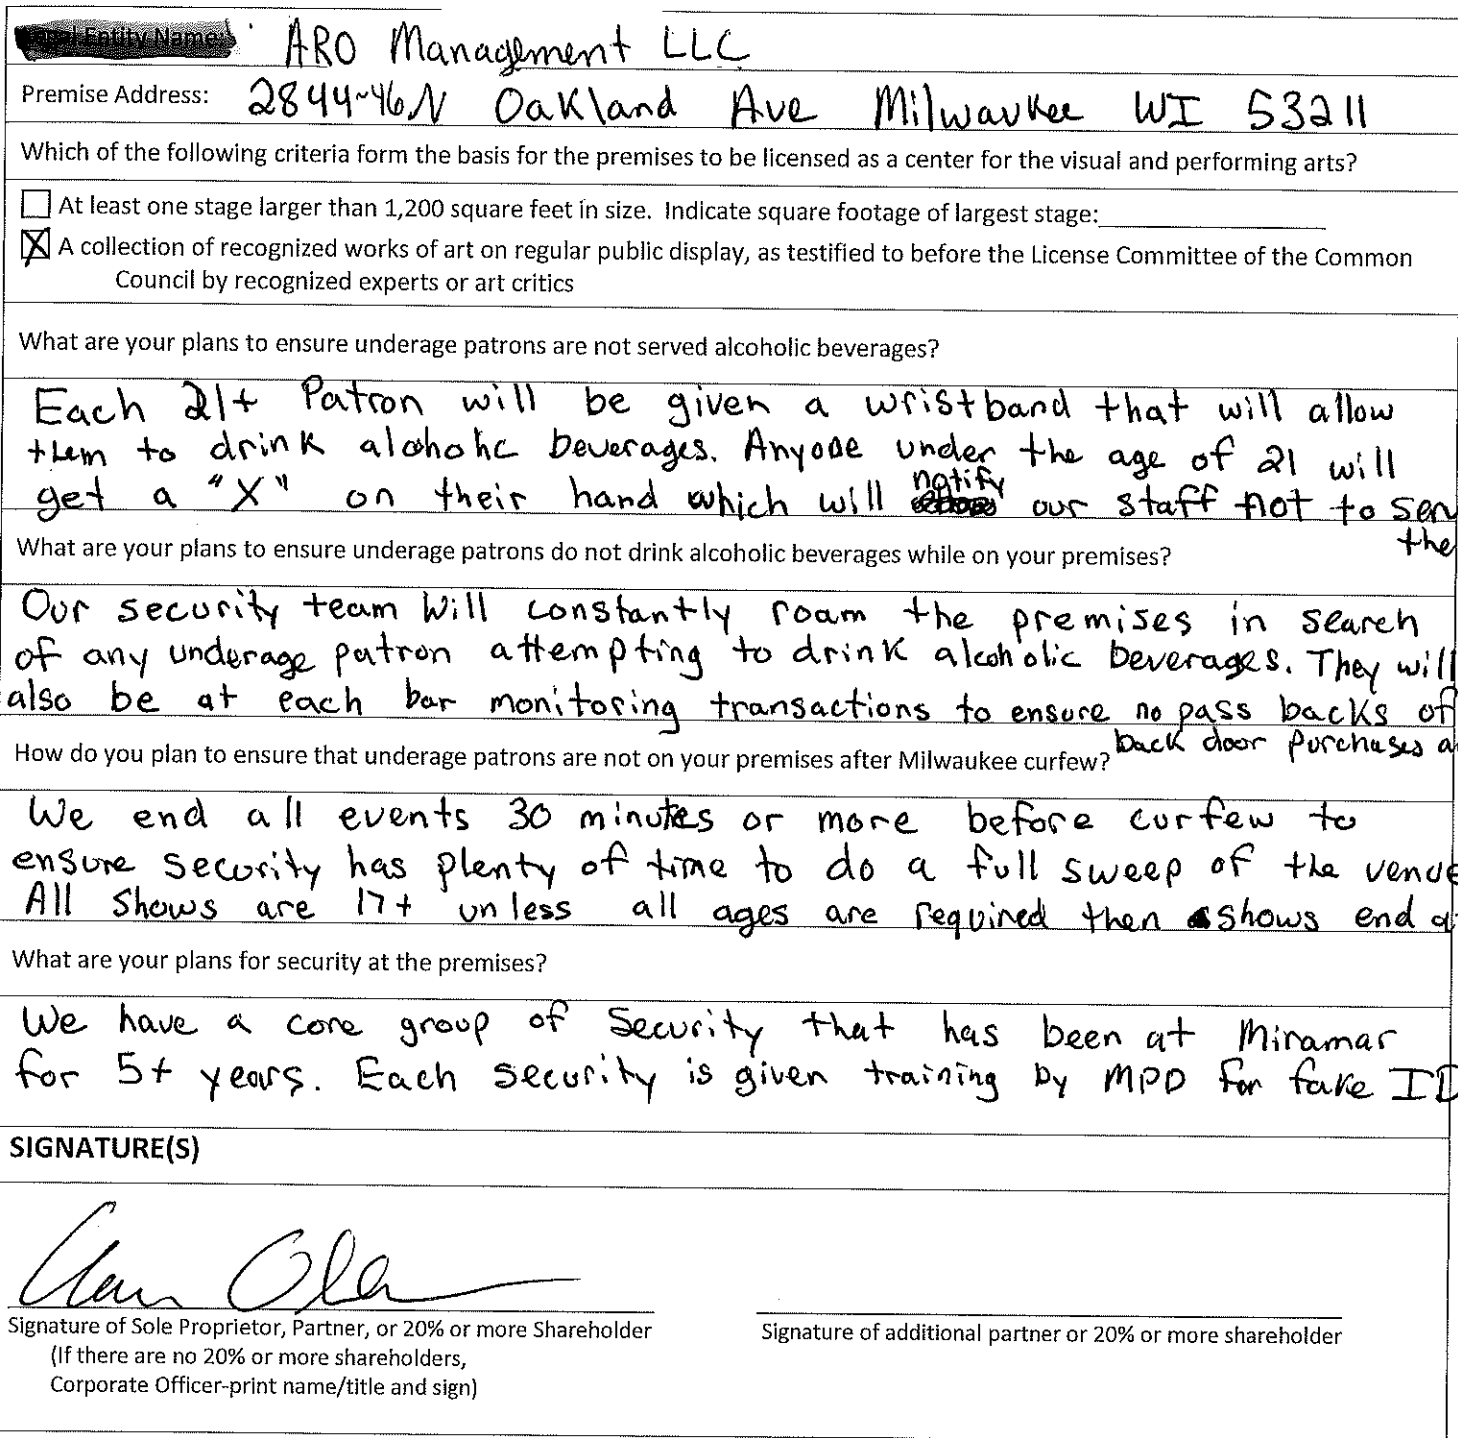 Legal Entity Name: ARO Management LLC
Premise Address: 2844-46 N Oakland Ave Milwaukee WI 53211
Which of the following criteria form the basis for the premises to be licensed as a center for the visual and performing arts?
☐ At least one stage larger than 1,200 square feet in size. Indicate square footage of largest stage:
☒ A collection of recognized works of art on regular public display, as testified to before the License Committee of the Common
Council by recognized experts or art critics
What are your plans to ensure underage patrons are not served alcoholic beverages?
Each 21+ Patron will be given a wristband that will allow
them to drink alohohc beverages. Anyone under the age of 21 will
get a "X" on their hand which will notify our staff not to serv
the
What are your plans to ensure underage patrons do not drink alcoholic beverages while on your premises?
Our security team will constantly roam the premises in search
of any underage patron attempting to drink alcoholic beverages. They will
also be at each bar monitoring transactions to ensure no pass backs of
back door purchases a
How do you plan to ensure that underage patrons are not on your premises after Milwaukee curfew?
We end all events 30 minutes or more before curfew to
ensure security has plenty of time to do a full sweep of the venue
All Shows are 17+ unless all ages are required then shows end a
What are your plans for security at the premises?
We have a core group of Security that has been at Miramar
for 5+ years. Each security is given training by MPD for fake ID
SIGNATURE(S)
Signature of Sole Proprietor, Partner, or 20% or more Shareholder
(If there are no 20% or more shareholders,
Corporate Officer-print name/title and sign)
Signature of additional partner or 20% or more shareholder